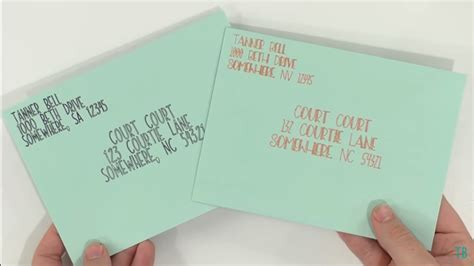 TANNER BELL
1000 BETH DRIVE
SOMEWHERE, SA 12345
COURT COURT
123 COURTIE LANE
SOMEWHERE, NC 54321
TANNER BELL
1000 BETH DRIVE
SOMEWHERE NV 12345
COURT COURT
COURTIE LANE
SOMEWHERE NC 54321
TB